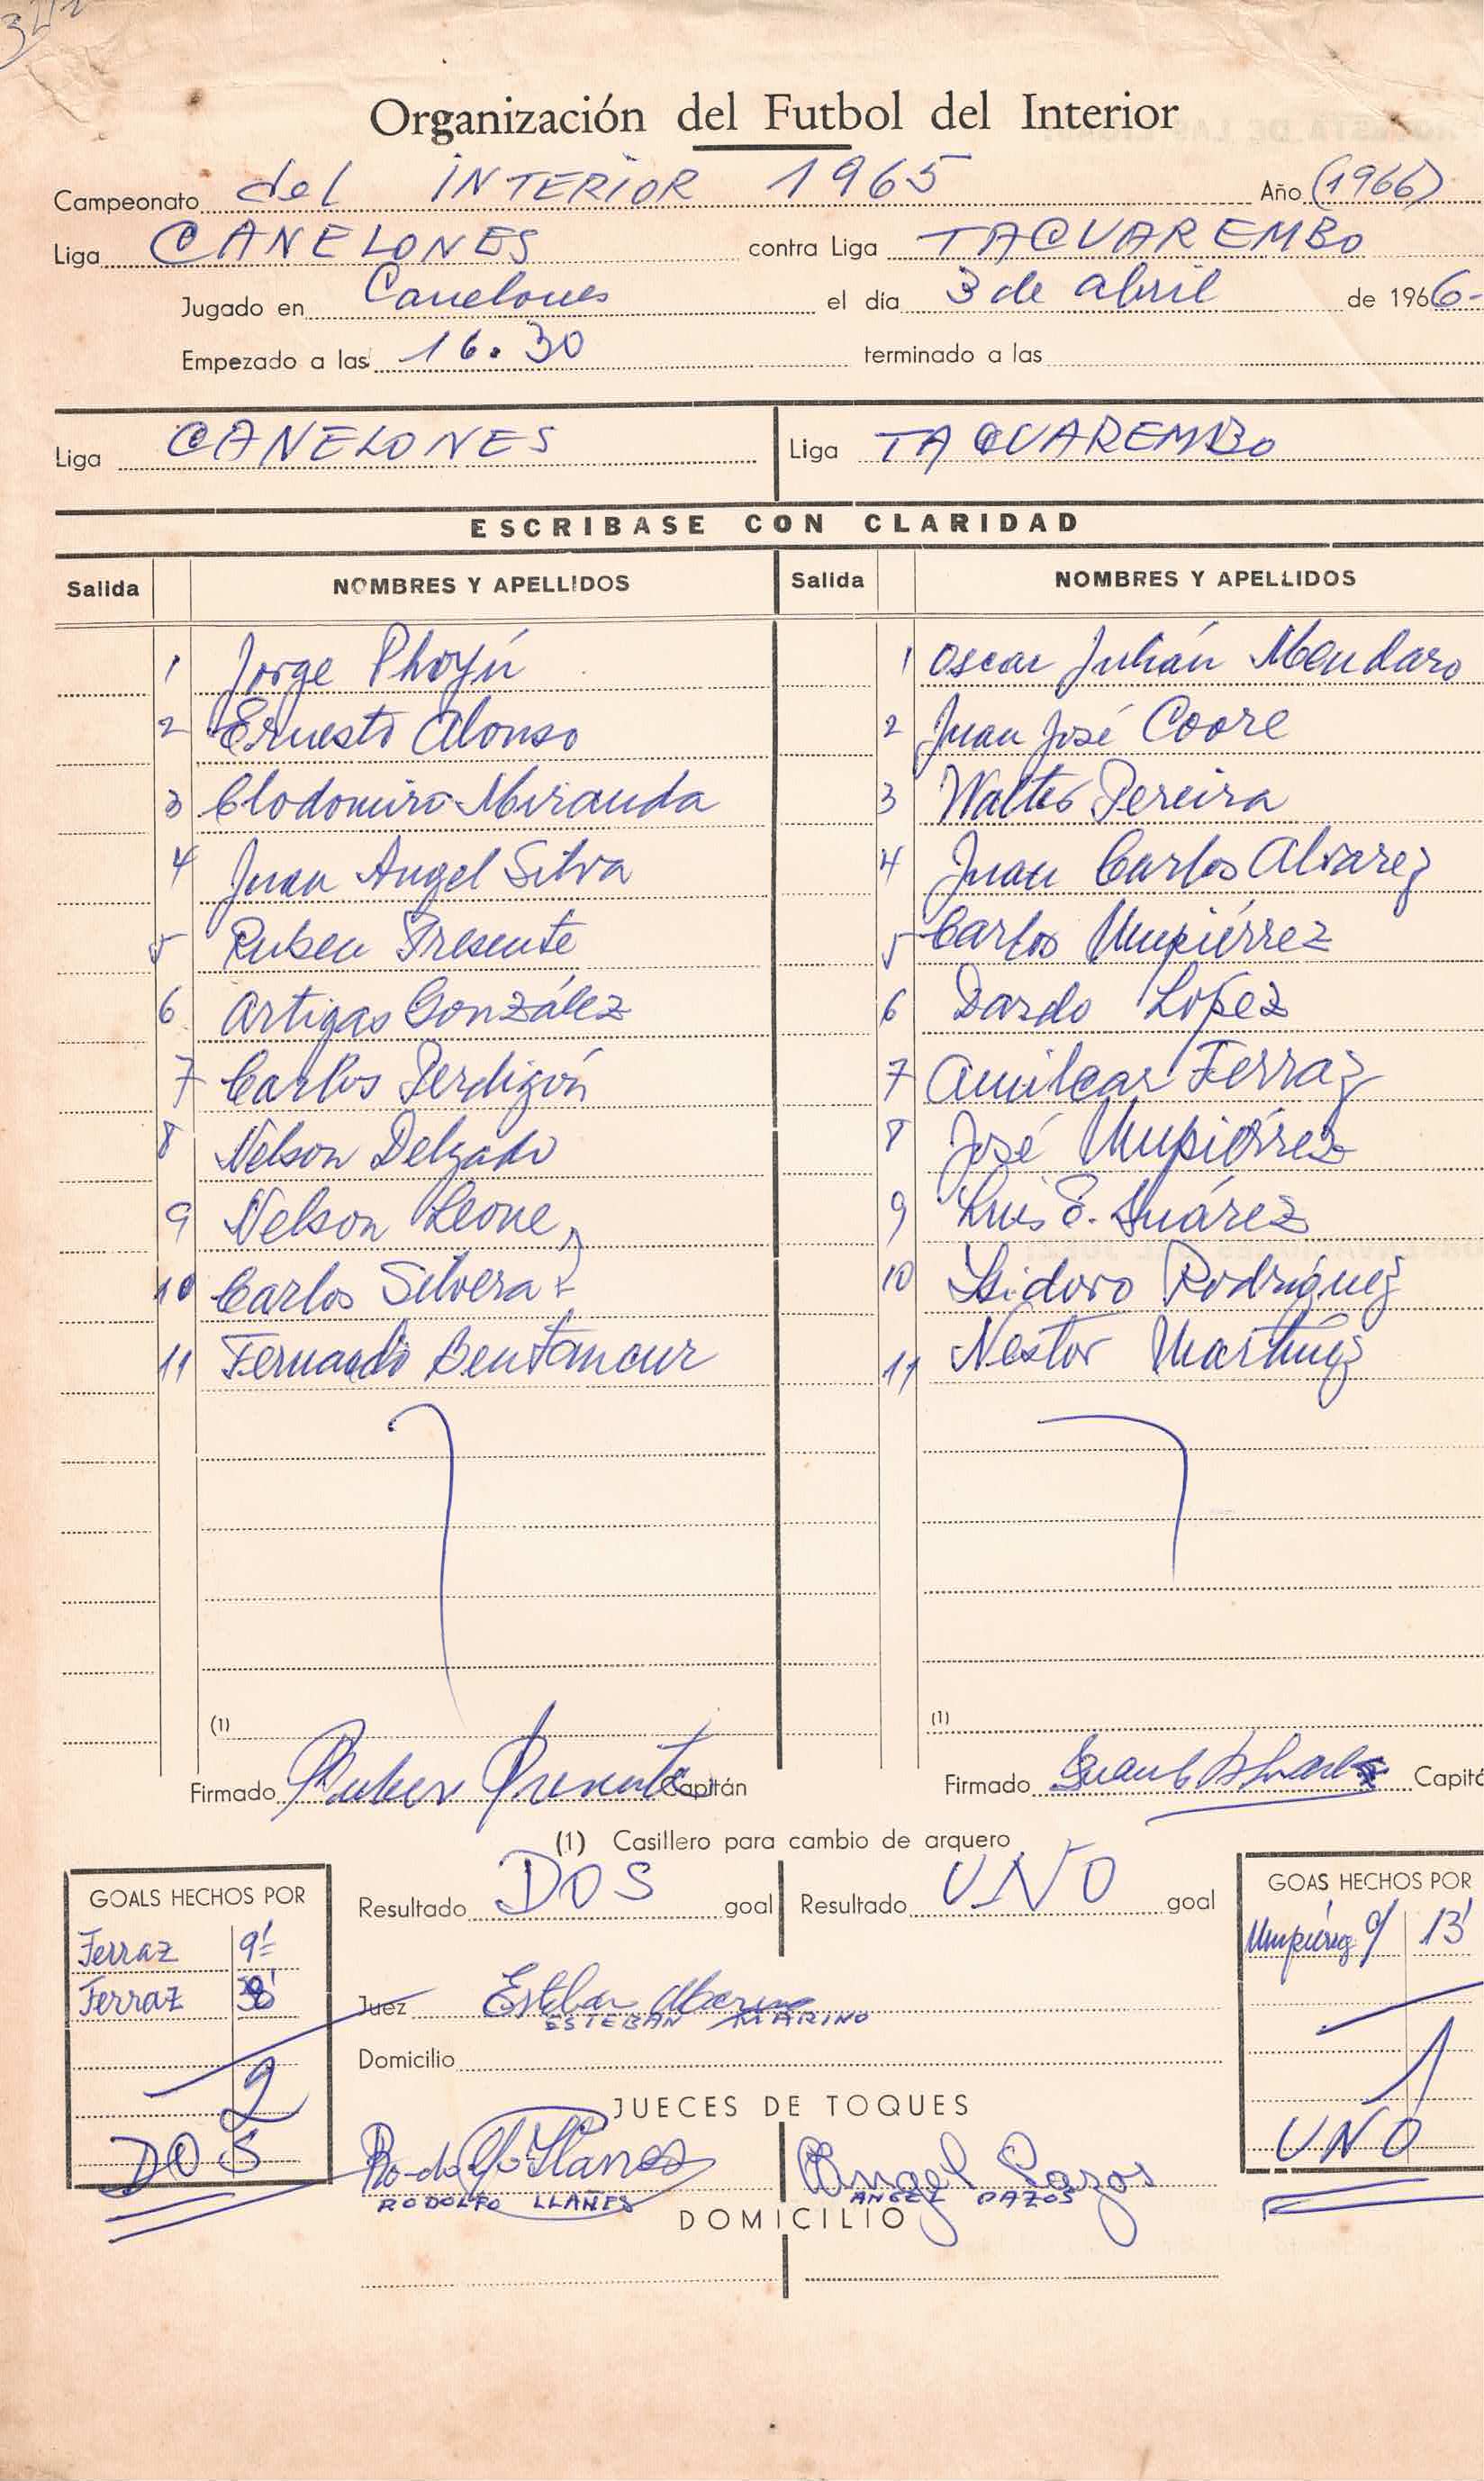 Organización del Futbol del Interior
Campeonato del INTERIOR 1965 Año (1966)
Liga CANELONES contra Liga TACUAREMBO
Jugado en Canelones el día 3 de abril de 1966-
Empezado a las 16.30 terminado a las
Liga CANELONES Liga TACUAREMBO
ESCRIBASE CON CLARIDAD
Salida NOMBRES Y APELLIDOS Salida NOMBRES Y APELLIDOS
1 Jorge Phoyú 1 Oscar Julián Mendaro
2 Ernesto Alonso 2 Juan José Coore
3 Clodomiro Miranda 3 Walter Pereira
4 Juan Angel Silva 4 Juan Carlos Alvarez
5 Ruben Presente 5 Carlos Umpiérrez
6 Artigas González 6 Dardo López
7 Carlos Perdigón 7 Amilcar Ferraz
8 Nelson Delgado 8 José Umpiérrez
9 Nelson Leone 9 Luis E. Suárez
10 Carlos Silvera 10 Isidoro Rodríguez
11 Fernando Bentancur 11 Nestor Martínez
(1) (1)
Firmado Ruben Presente Capitán Firmado Capitá
(1) Casillero para cambio de arquero
GOALS HECHOS POR Resultado DOS goal Resultado UNO goal GOAS HECHOS POR
Ferraz 9' Umpiérrez 13'
Ferraz 38'
Juez Esteban Marino
ESTEBAN MARINO
Domicilio
2 1
JUECES DE TOQUES
DOS Rodolfo Llanes Angel Pazos UNO
RODOLFO LLAÑES ANGEL PAZOS
DOMICILIO